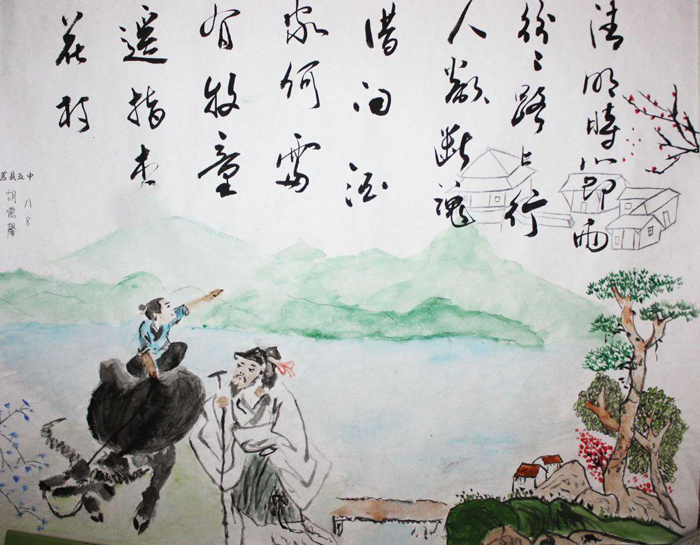 清明時節雨
纷々路上行
人欲断魂
借问酒
家何處
有牧童
遥指杏
花村
莒县五中
八 8